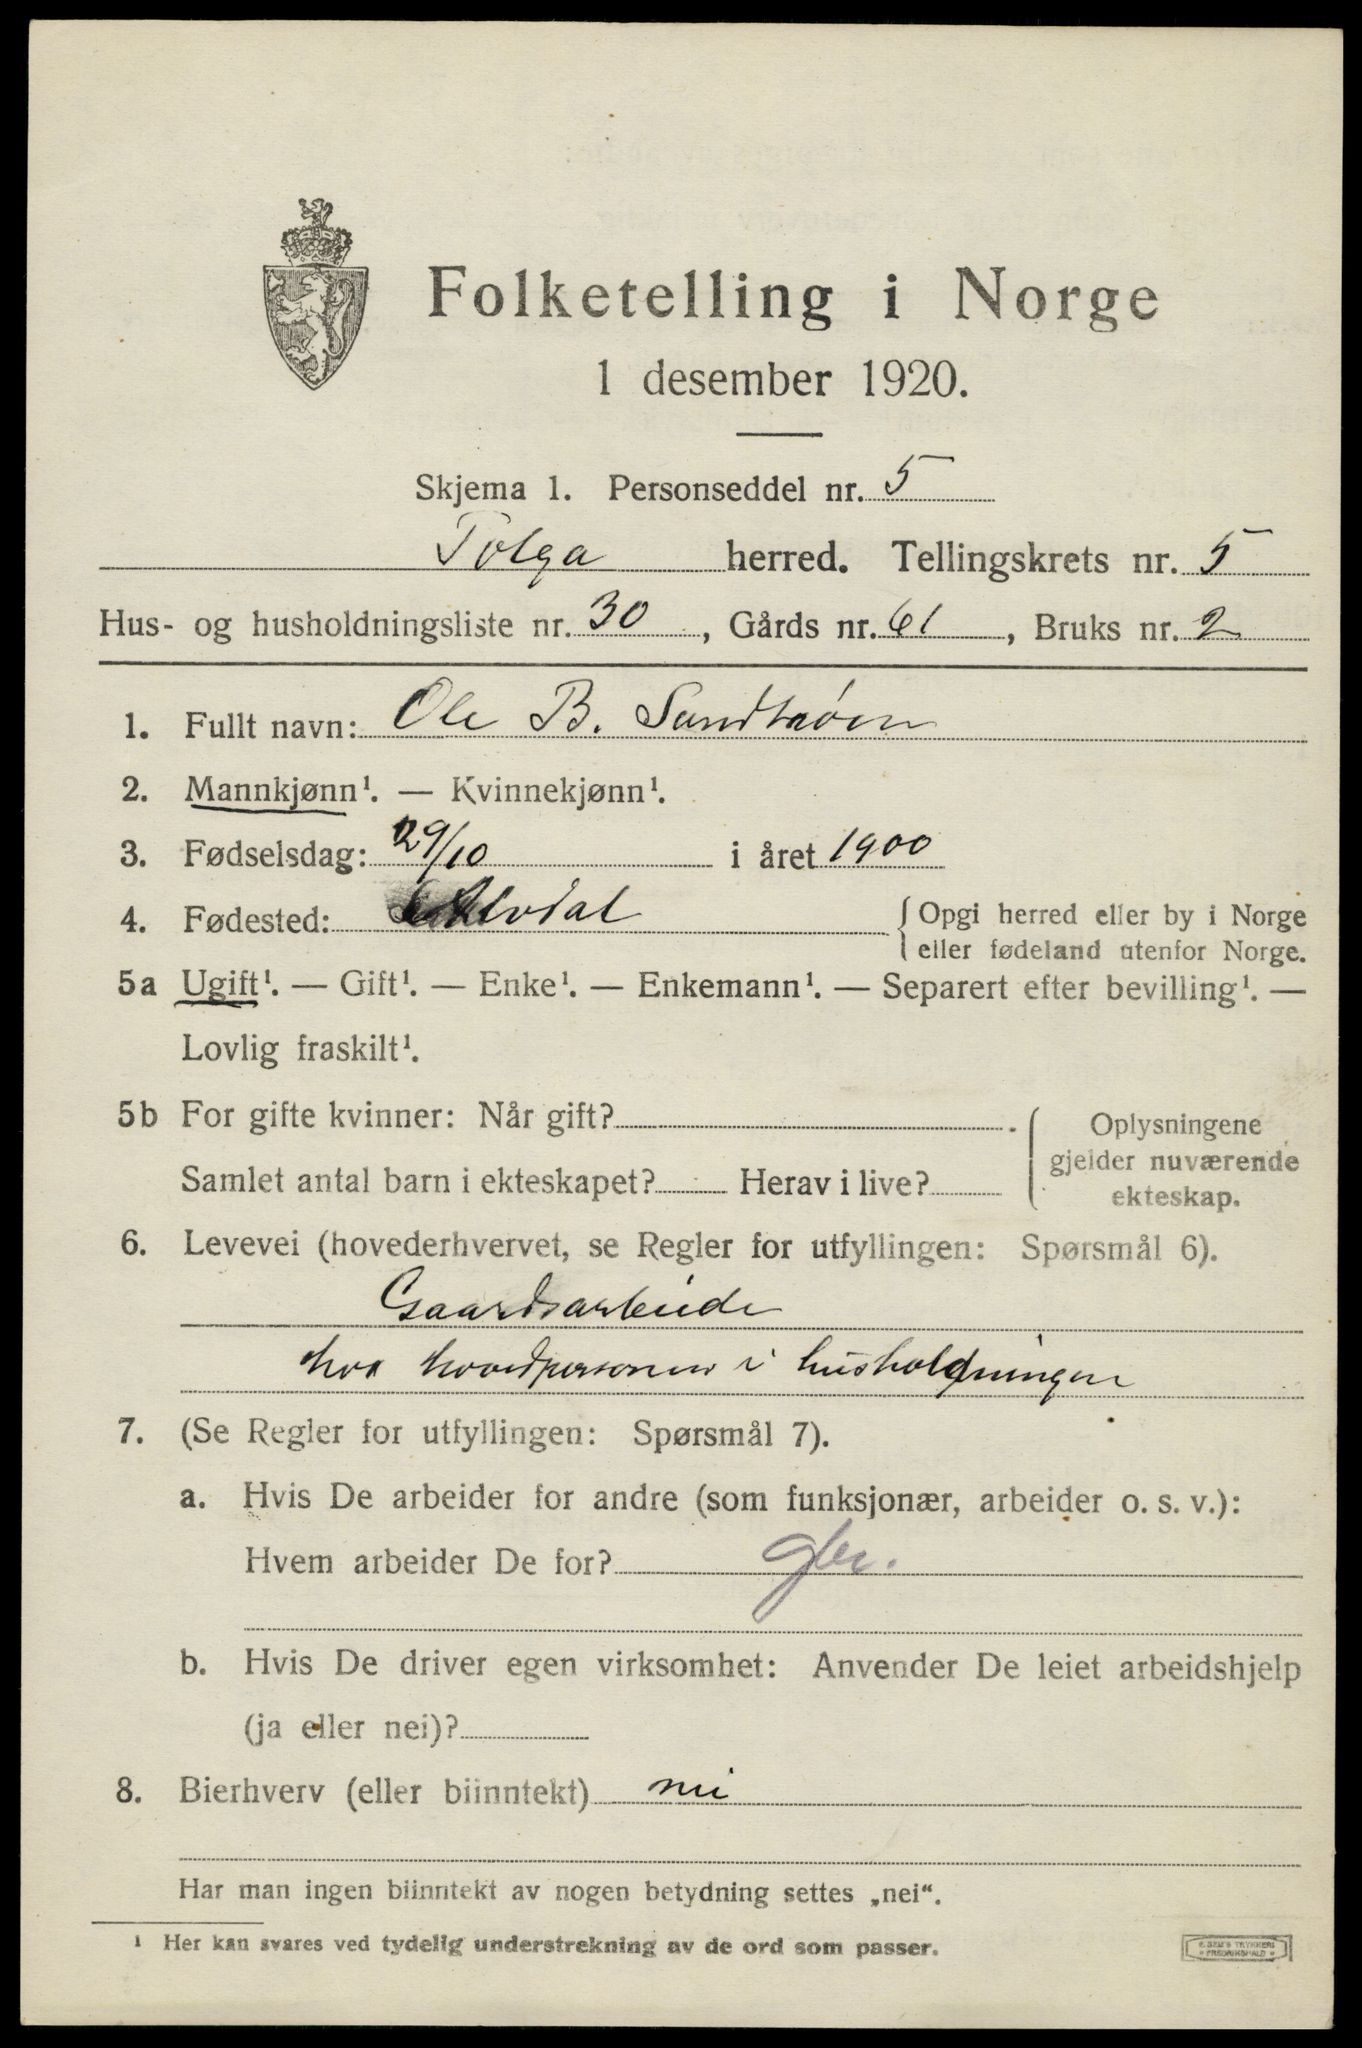 Folketelling i Norge
1 desember 1920.
Skjema 1. Personseddel nr. 5
Tolga herred. Tellingskrets nr. 5
Hus- og husholdningsliste nr. 30, Gårds nr. 61, Bruks nr. 2
1. Fullt navn: Ole B. Sandtrøen
2. Mannkjønn¹. — Kvinnekjønn¹.
3. Fødselsdag: 29/10 i året 1900
4. Fødested: Alvdal { Opgi herred eller by i Norge
eller fødeland utenfor Norge.
5a Ugift¹. — Gift¹. — Enke¹. — Enkemann¹. — Separert efter bevilling¹. —
Lovlig fraskilt¹.
5b For gifte kvinner: Når gift? . { Oplysningene
gjelder nuværende
Samlet antal barn i ekteskapet? Herav i live? ekteskap.
6. Levevei (hovederhvervet, se Regler for utfyllingen: Spørsmål 6).
Gaardsarbeide
hos hovedpersonen i husholdningen
7. (Se Regler for utfyllingen: Spørsmål 7).
a. Hvis De arbeider for andre (som funksjonær, arbeider o. s. v.):
Hvem arbeider De for? gbr.
b. Hvis De driver egen virksomhet: Anvender De leiet arbeidshjelp
(ja eller nei)?
8. Bierhverv (eller biinntekt) nei
Har man ingen biinntekt av nogen betydning settes „nei“.
¹ Her kan svares ved tydelig understrekning av de ord som passer.
E. SEM'S TRYKKERI
FREDRIKSHALD